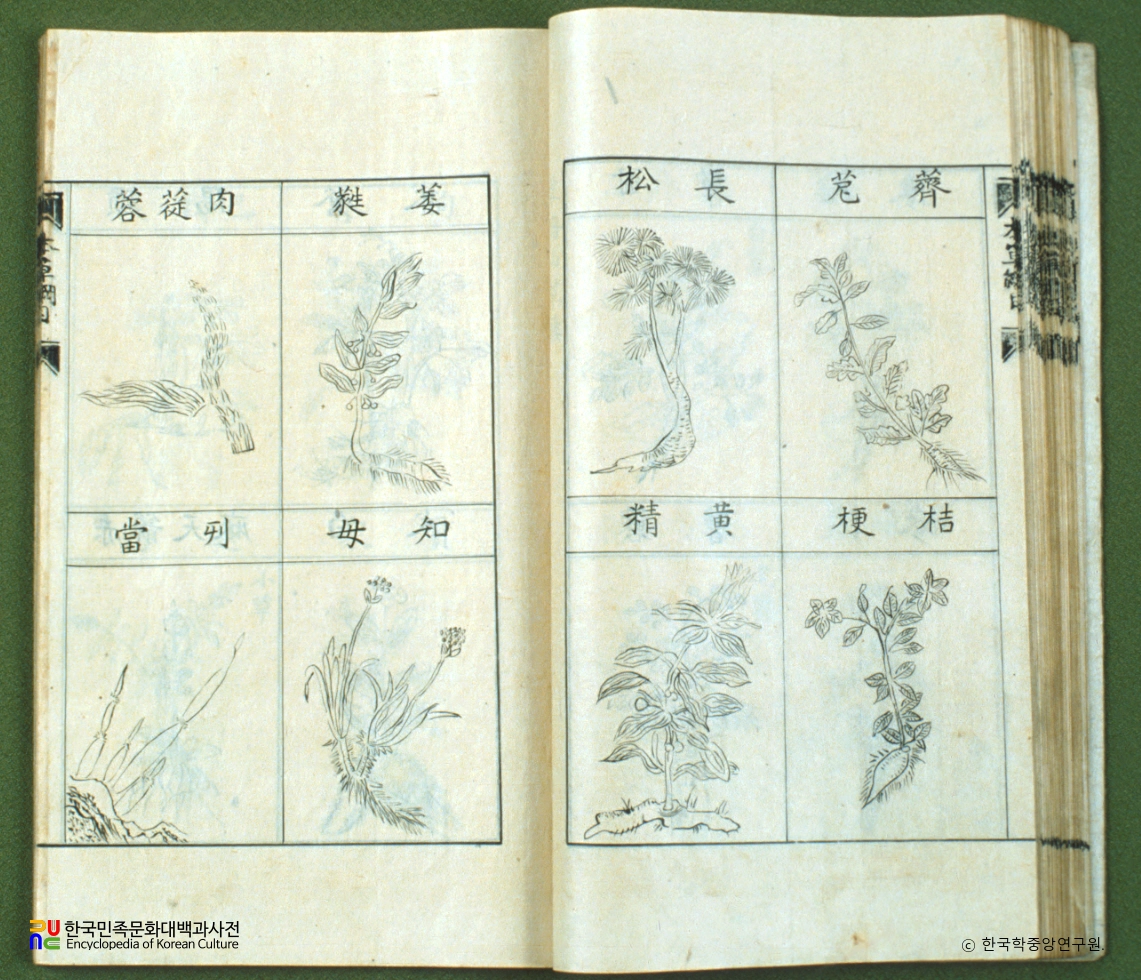 薺苨
長松
桔梗
黄精
本草綱目
萎蕤
肉蓯蓉
知母
列當
本草綱目
한국민족문화대백과사전
Encyclopedia of Korean Culture
ⓒ 한국학중앙연구원.